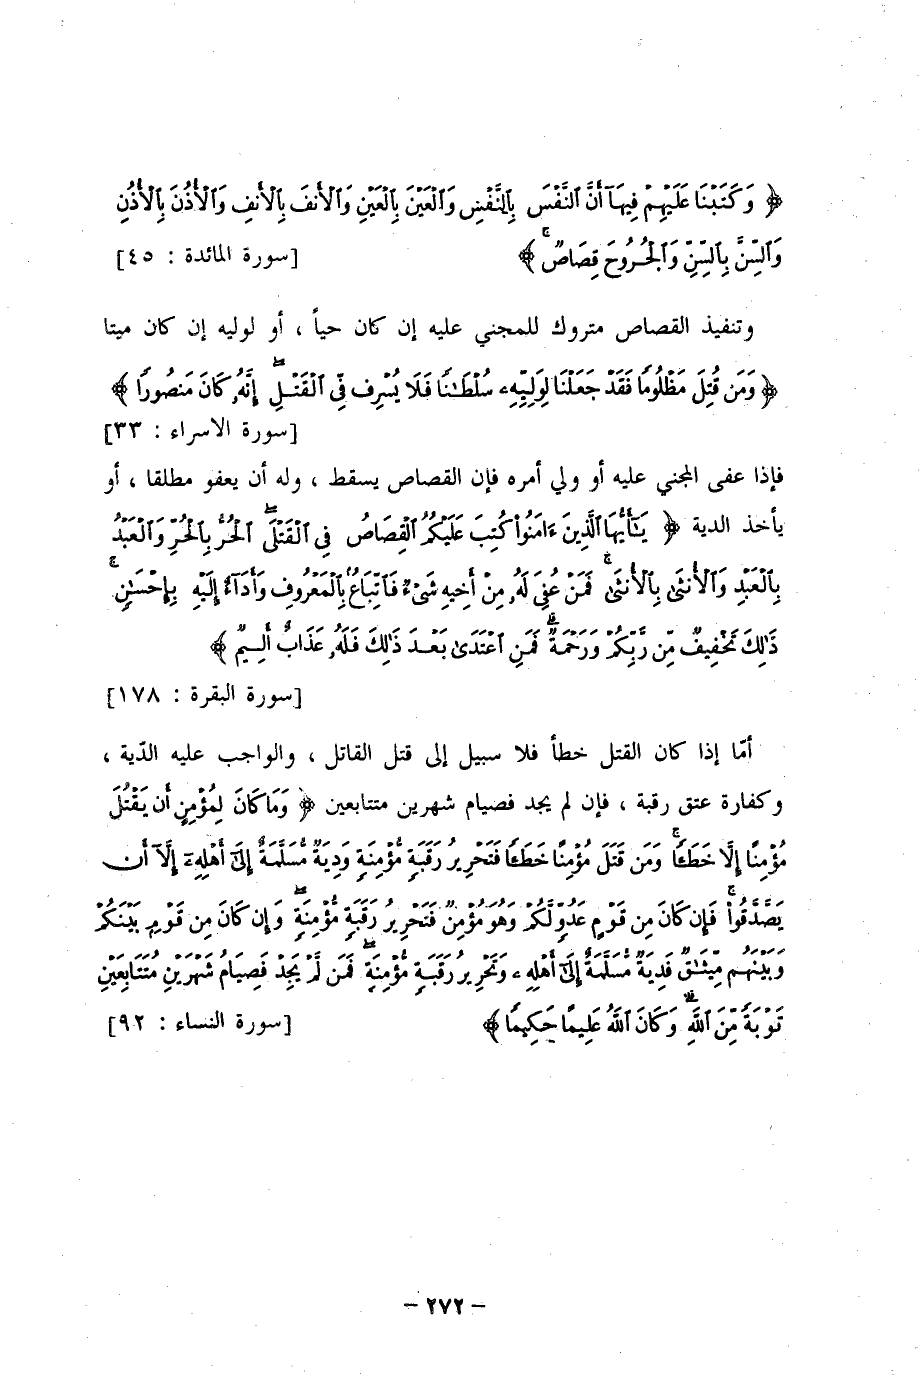 ﴿ وَكَتَبْنَا عَلَيْهِمْ فِيهَآ أَنَّ ٱلنَّفْسَ بِٱلنَّفْسِ وَٱلْعَيْنَ بِٱلْعَيْنِ وَٱلْأَنفَ بِٱلْأَنفِ وَٱلْأُذُنَ بِٱلْأُذُنِ
وَٱلسِّنَّ بِٱلسِّنِّ وَٱلْجُرُوحَ قِصَاصٌ ۚ ﴾ [سورة المائدة : ٤٥]
وتنفيذ القصاص متروك للمجني عليه إن كان حياً ، أو لوليه إن كان ميتا
﴿ وَمَن قُتِلَ مَظْلُومًا فَقَدْ جَعَلْنَا لِوَلِيِّهِۦ سُلْطَـٰنًا فَلَا يُسْرِف فِّى ٱلْقَتْلِ ۖ إِنَّهُۥ كَانَ مَنصُورًا ﴾
[سورة الاسراء : ٣٣]
فإذا عفى المجني عليه أو ولي أمره فإن القصاص يسقط ، وله أن يعفو مطلقا ، أو
يأخذ الدية ﴿ يَـٰٓأَيُّهَا ٱلَّذِينَ ءَامَنُوا۟ كُتِبَ عَلَيْكُمُ ٱلْقِصَاصُ فِى ٱلْقَتْلَى ۖ ٱلْحُرُّ بِٱلْحُرِّ وَٱلْعَبْدُ
بِٱلْعَبْدِ وَٱلْأُنثَىٰ بِٱلْأُنثَىٰ ۚ فَمَنْ عُفِىَ لَهُۥ مِنْ أَخِيهِ شَىْءٌ فَٱتِّبَاعٌۢ بِٱلْمَعْرُوفِ وَأَدَآءٌ إِلَيْهِ بِإِحْسَـٰنٍ ۗ
ذَٰلِكَ تَخْفِيفٌ مِّن رَّبِّكُمْ وَرَحْمَةٌ ۗ فَمَنِ ٱعْتَدَىٰ بَعْدَ ذَٰلِكَ فَلَهُۥ عَذَابٌ أَلِيمٌ ﴾
[سورة البقرة : ١٧٨]
أمّا إذا كان القتل خطأ فلا سبيل إلى قتل القاتل ، والواجب عليه الدّية ،
وكفارة عتق رقبة ، فإن لم يجد فصيام شهرين متتابعين ﴿ وَمَا كَانَ لِمُؤْمِنٍ أَن يَقْتُلَ
مُؤْمِنًا إِلَّا خَطَـًٔا ۚ وَمَن قَتَلَ مُؤْمِنًا خَطَـًٔا فَتَحْرِيرُ رَقَبَةٍ مُّؤْمِنَةٍ وَدِيَةٌ مُّسَلَّمَةٌ إِلَىٰٓ أَهْلِهِۦٓ إِلَّآ أَن
يَصَّدَّقُوا۟ ۚ فَإِن كَانَ مِن قَوْمٍ عَدُوٍّ لَّكُمْ وَهُوَ مُؤْمِنٌ فَتَحْرِيرُ رَقَبَةٍ مُّؤْمِنَةٍ ۖ وَإِن كَانَ مِن قَوْمٍۭ بَيْنَكُمْ
وَبَيْنَهُم مِّيثَـٰقٌ فَدِيَةٌ مُّسَلَّمَةٌ إِلَىٰٓ أَهْلِهِۦ وَتَحْرِيرُ رَقَبَةٍ مُّؤْمِنَةٍ ۖ فَمَن لَّمْ يَجِدْ فَصِيَامُ شَهْرَيْنِ مُتَتَابِعَيْنِ
تَوْبَةً مِّنَ ٱللَّهِ ۗ وَكَانَ ٱللَّهُ عَلِيمًا حَكِيمًا ﴾ [سورة النساء : ٩٢]
- ٢٧٢ -